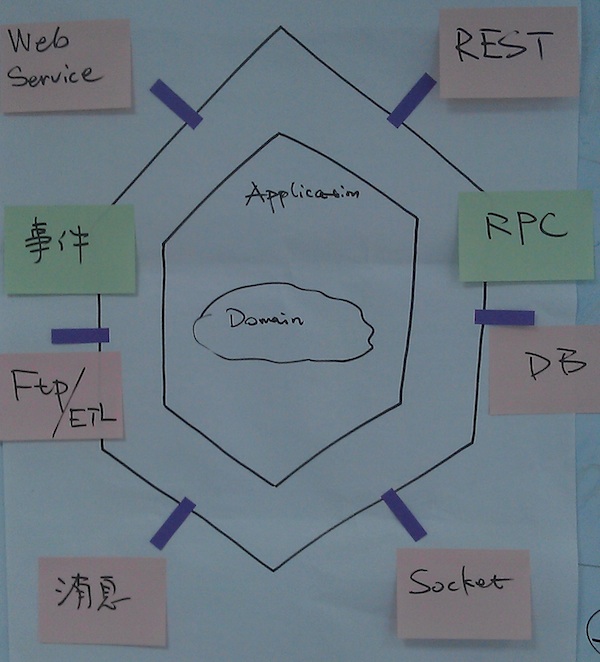 Web
Service
REST
Application
事件
RPC
Domain
Ftp/
ETL
DB
消息
Socket